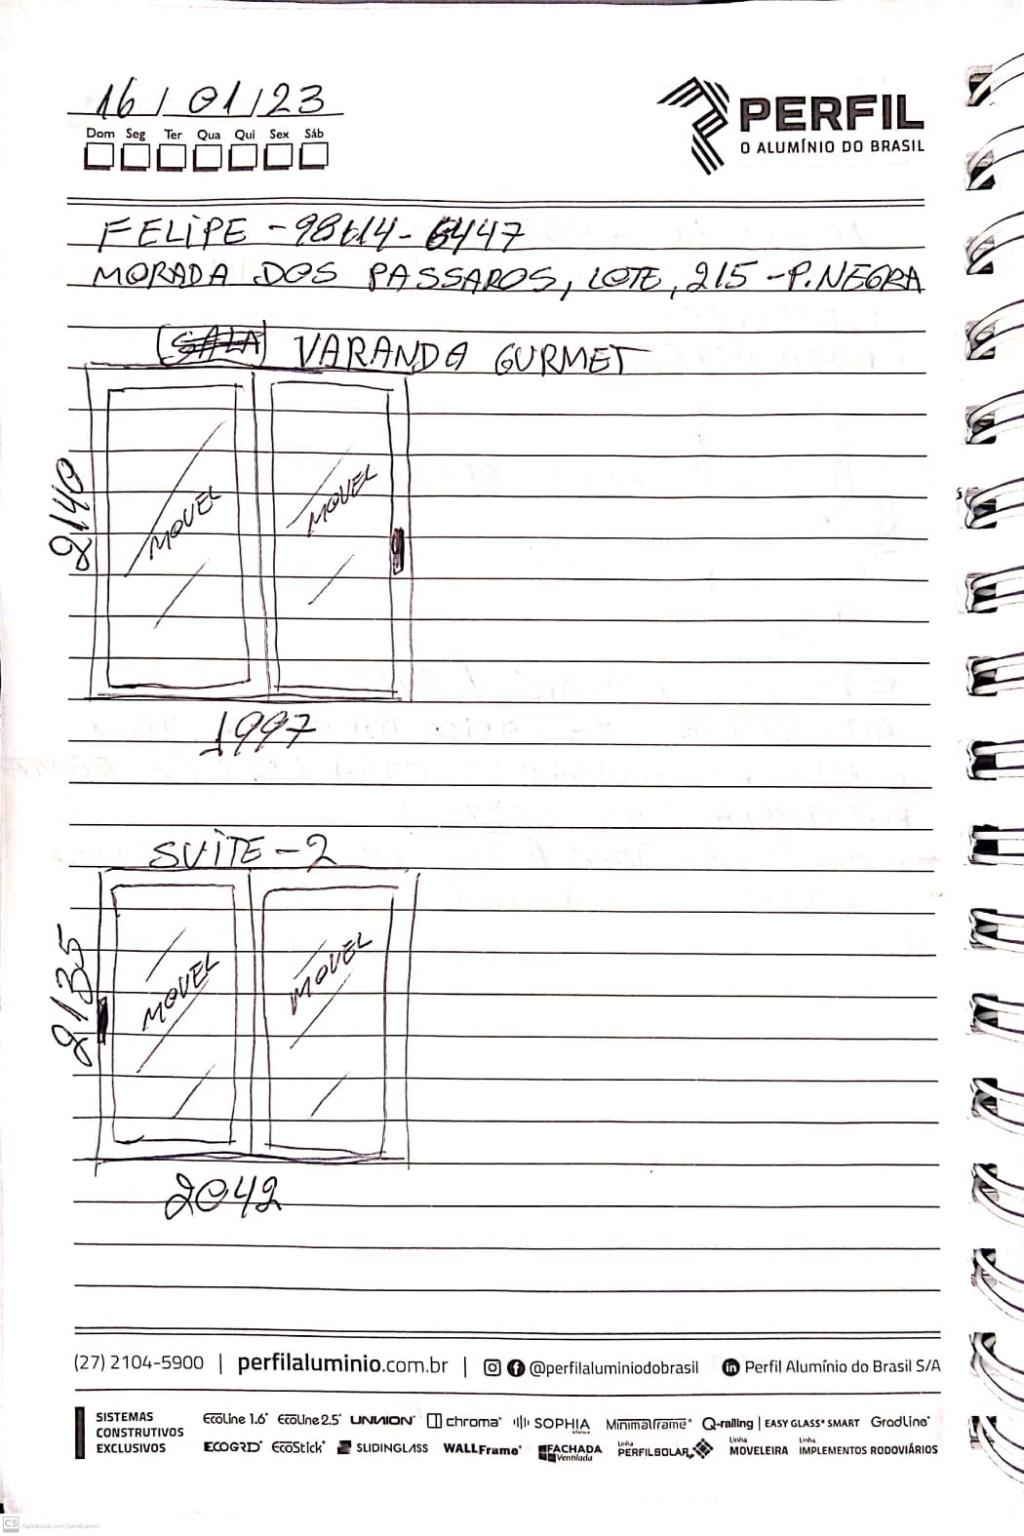 16 / 01 / 23
Dom Seg Ter Qua Qui Sex Sáb
PERFIL
O ALUMÍNIO DO BRASIL
FELIPE - 98614-6447
MORADA DOS PASSAROS, LOTE, 215 - P. NEGRA
(SALA) VARANDA GURMET
2140
MOVEL MOVEL
1997
SUÍTE - 2
2135
MOVEL MOVEL
2042
(27) 2104-5900 | perfilaluminio.com.br | @perfilaluminiodobrasil Perfil Alumínio do Brasil S/A
SISTEMAS
CONSTRUTIVOS
EXCLUSIVOS
EcoLine 1.6 EcoLine 2.5 UNNION chroma SOPHIA Minimalframe Q-railing | EASY GLASS SMART GradLine
ECOGRID EcoStick SLIDINGLASS WALLFrame FACHADA Ventilada Linha PERFILSOLAR Linha MOVELEIRA Linha IMPLEMENTOS RODOVIÁRIOS
CS Digitalizado com CamScanner